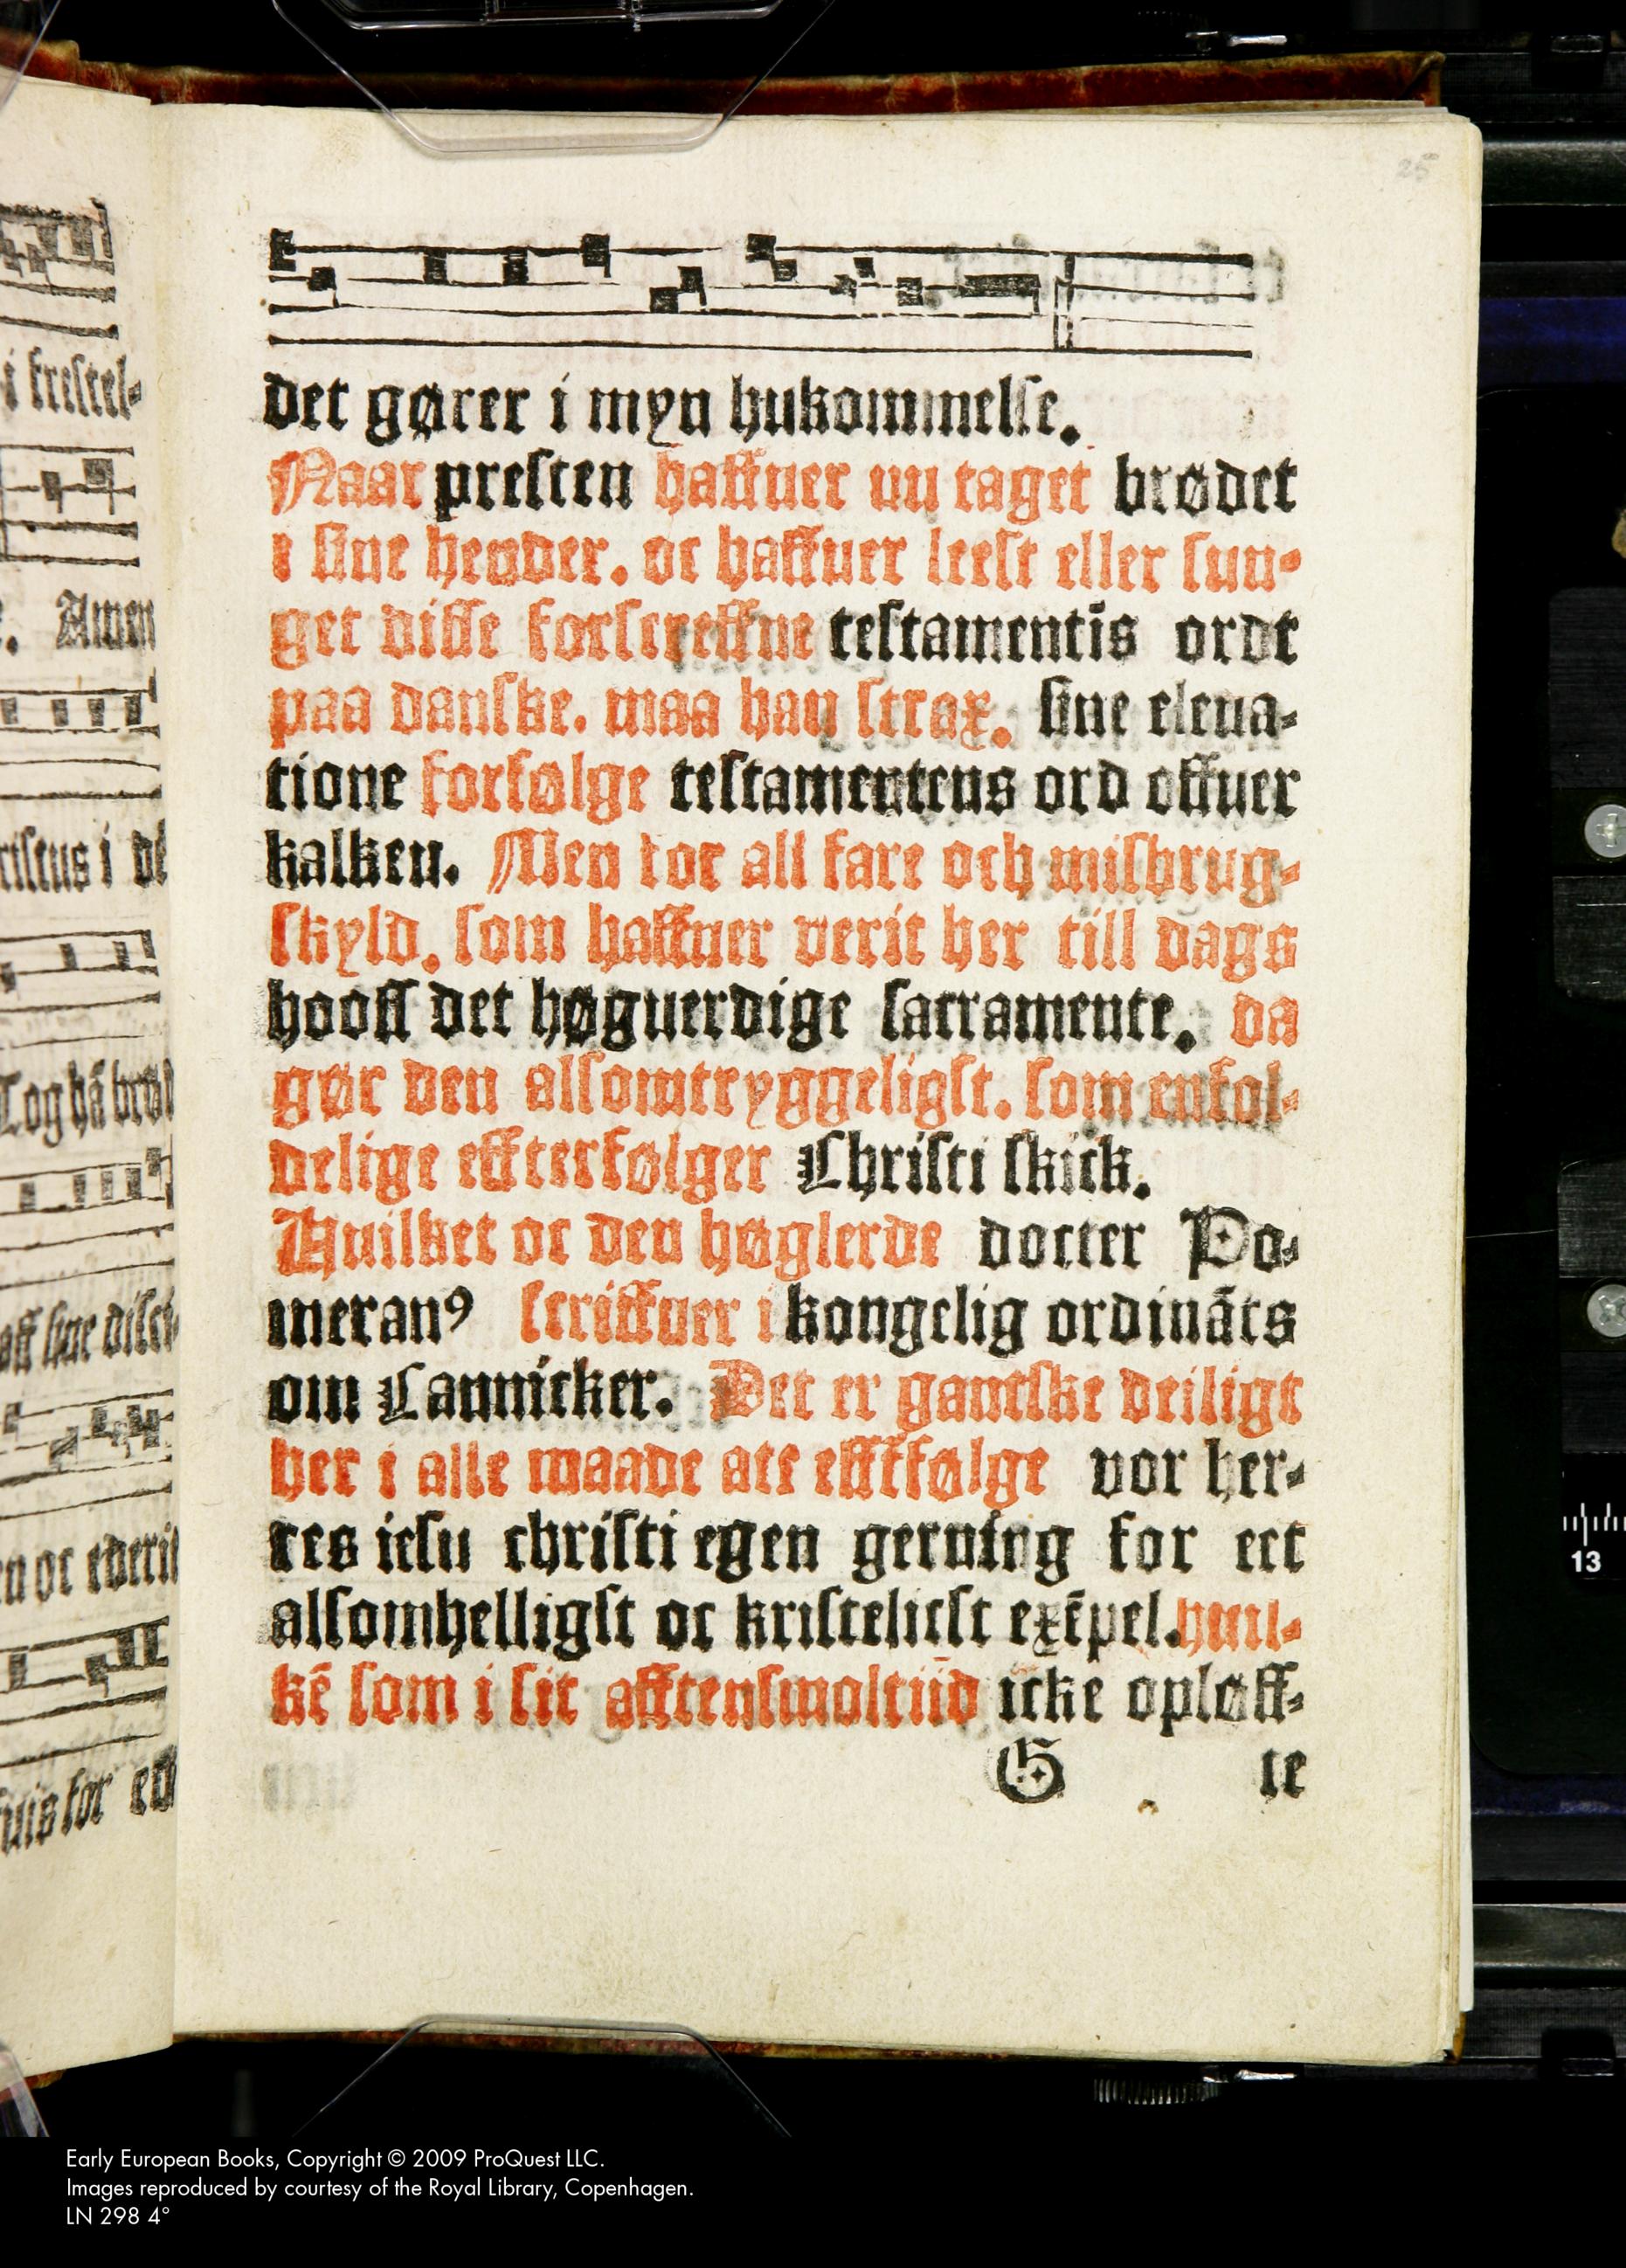 25
det gører i myn hukommelſe.
Naar preſten haffuer nu taget brødet
i ſine hender. oc haffuer leeſt eller ſun-
get diſſe forſcreffne teſtamentis ordt
paa danſke. maa han ſtrax. ſine eleua-
tione forfølge teſtamentens ord offuer
kalken. Men for all fare och miſbrug-
ſkyld. ſom haffuer verit her till dags
hooſſ det høguerdige ſacramente. da
gør den alſomtryggeligſt. ſom enfol-
delige effterfølger Chriſti ſkick.
Huilket oc den høglerde docter Po-
meranꝰ ſcriffuer i kongelig ordinācs
om Cannicker. Det er gantſke deiligt
her i alle maade att efftfølge vor her-
res ieſu chriſti egen gerning for ect
alſomhelligſt oc kriſteligſt exēpel. huil-
kē ſom i ſit afftenſmoltiid icke opløff-
G te
i freſtel-
Amen
riſtus i dē
Tog hā brød
aff ſine diſci-
en oc ederit
for ed
13
Early European Books, Copyright © 2009 ProQuest LLC.
Images reproduced by courtesy of the Royal Library, Copenhagen.
LN 298 4°